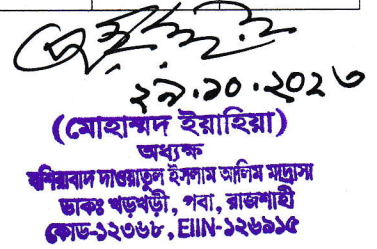 ২৯.১০.২০২৩
(মোহাম্মদ ইয়াহিয়া)
অধ্যক্ষ
দাওয়াতুল ইসলাম আলিম মাদ্রাসা
ডাকঃ খড়খড়ী, পবা, রাজশাহী
কোড-১২৩৬৮, EIIN-১২৬৯১৫